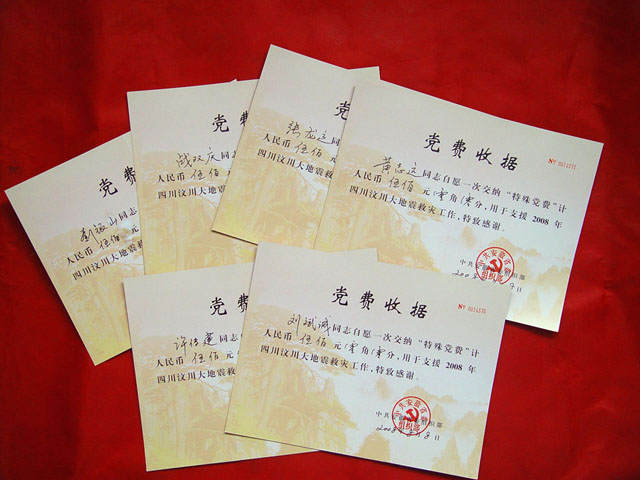 党
张龙运同
人民币 伍佰
四川汶川大地震救灾
党费收据
黄志运同志自愿一次交纳“特殊党费”计
人民币 伍佰 元/零角/零分,用于支援2008年
四川汶川大地震救灾工作,特致感谢。
中共安徽省委组织部
日
党
战双庆同
人民币 伍佰
四川汶川大地震救
党
同志
人民币 伍佰 元
四川汶川大地震救
党
许传建同
人民币 伍佰 元
四川汶川大地震救
党费收据
刘斌诚同志自愿一次交纳“特殊党费”计
人民币 伍佰 元/零角/零分,用于支援2008年
四川汶川大地震救灾工作,特致感谢。
中共 织部
日